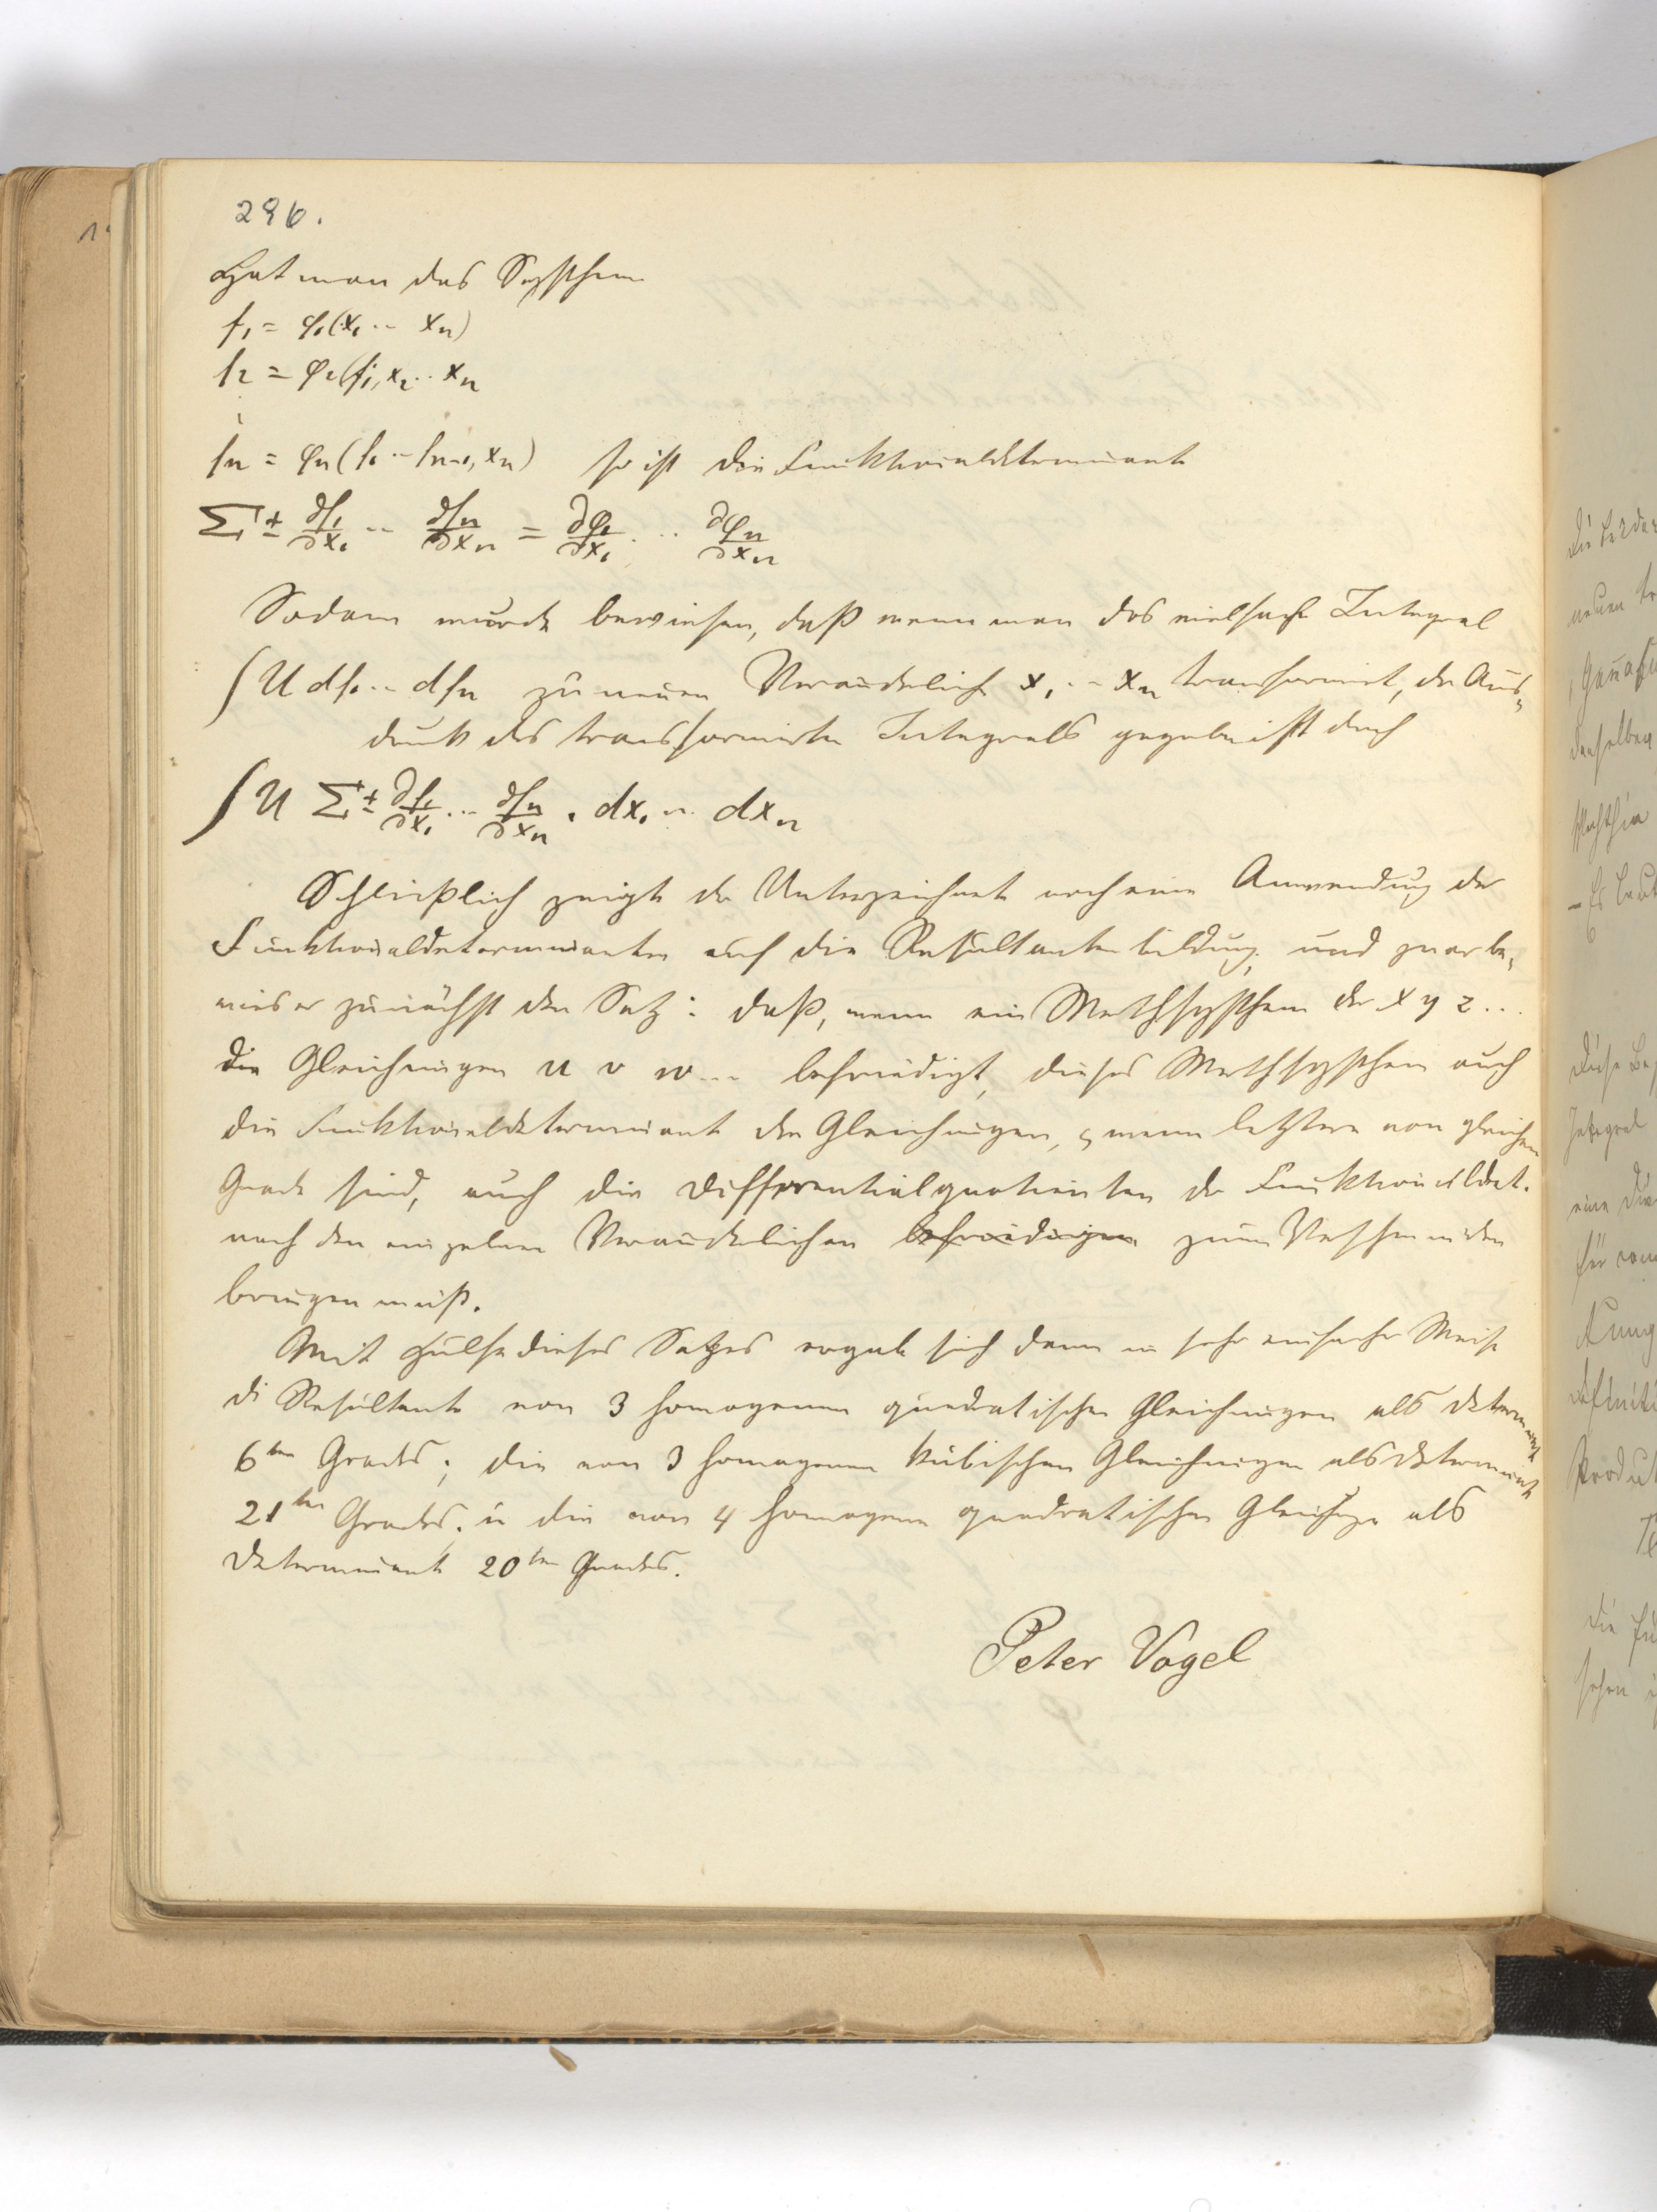 296.
Hat man das System
f₁ = φ₁(x₁ ·· xₙ)
f₂ = φ₂(f₁, x₂ ·· xₙ
fₙ = φₙ(f₁ ·· fₙ₋₁, xₙ) so ist die Funktionaldeterminante
Σ ± ∂f₁/∂x₁ ·· ∂fₙ/∂xₙ = ∂φ₁/∂x₁ · ·· ∂φₙ/∂xₙ
Sodann wurde bewiesen, daß wenn man das vielfache Integral
∫ U df₁ ·· dfₙ zu neuen Veränderlichen x₁ ·· xₙ transformirt, der Aus-
druck des transformirten Integrals gegeben ist durch
∫ U Σ ± ∂f₁/∂x₁ ·· ∂fₙ/∂xₙ . dx₁ ·· dxₙ
Schließlich zeigte der Unterzeichnete noch eine Anwendung der
Funktionaldeterminanten auf die Resultantenbildung, und zwar be-
wies er zunächst den Satz: daß, wenn ein Werthsystem der x y z ...
die Gleichungen u v w ... befriedigt, dieses Werthsystem auch
die Funktionaldeterminante der Gleichungen, & wenn letztere von gleichem
Grade sind, auch die Differentialquotienten der Funktionaldet.
nach den einzelnen Veränderlichen befriedigen zum Verschwinden
bringen muß.
Mit Hülfe dieses Satzes ergab sich dann in sehr einfacher Weise
die Resultante von 3 homogenen quadratischen Gleichungen als Determinante
6ten Grades; die von 3 homogenen kubischen Gleichungen als Determinante
21ten Grades. u die von 4 homogenen quadratischen Gleichungen als
Determinante 20ten Grades.
Peter Vogel